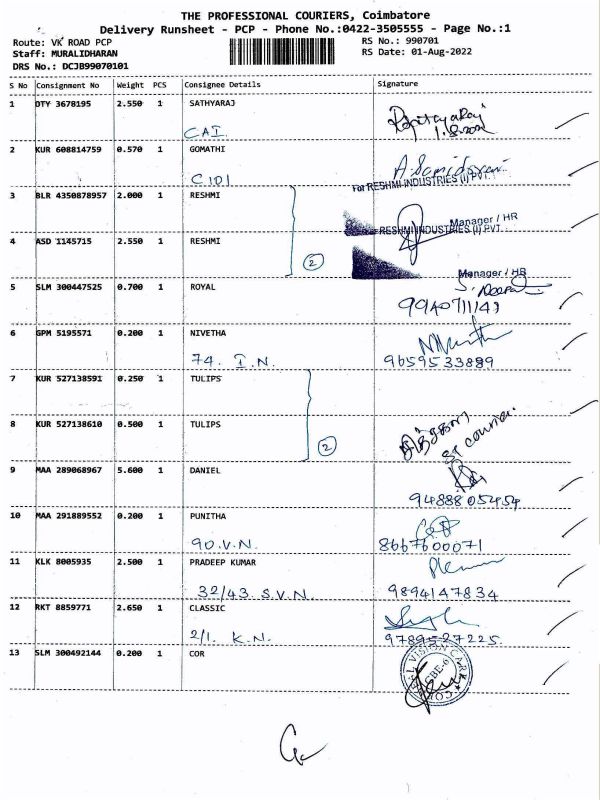 THE PROFESSIONAL COURIERS, Coimbatore
Delivery Runsheet - PCP - Phone No.:0422-3505555 - Page No.:1
Route: VK ROAD PCP
RS No.: 990701
Staff: MURALIDHARAN
RS Date: 01-Aug-2022
DRS No.: DCJB99070101
S No Consignment No Weight PCS Consignee Details Signature
1 DTY 3678195 2.550 1 SATHYARAJ
CAI.
2 KUR 608814759 0.570 1 GOMATHI
CIDI
For RESHMI INDUSTRIES (I) PVT.
3 BLR 4350878957 2.000 1 RESHMI
Manager / HR
RESHMI INDUSTRIES (I) PVT.
4 ASD 1145715 2.550 1 RESHMI
2
Manager / HR
5 SLM 300447525 0.700 1 ROYAL
6 GPM 5195571 0.200 1 NIVETHA
74. I.N. 9659533889
7 KUR 527138591 0.250 1 TULIPS
8 KUR 527138610 0.500 1 TULIPS
2
ST courier.
9 MAA 289068967 5.600 1 DANIEL
9488805454
10 MAA 291889552 0.200 1 PUNITHA
90. V.N. 8667600071
11 KLK 8005935 2.500 1 PRADEEP KUMAR
32/43 S.V.N. 9894147834
12 RKT 8859771 2.650 1 CLASSIC
2/1. K.N. 9789527225
13 SLM 300492144 0.200 1 COR
VISION CARE
CBE-6